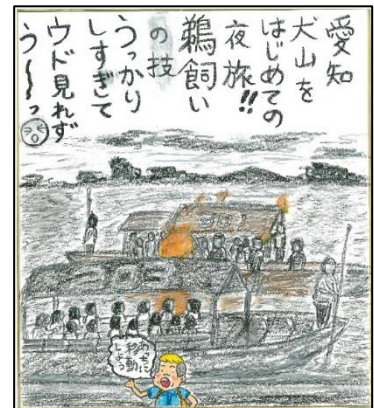 愛知
犬山を
はじめての
夜旅!!
鵜飼い
の技
うっかり
しすぎて
ウド見れず
う〜〜っ
移動